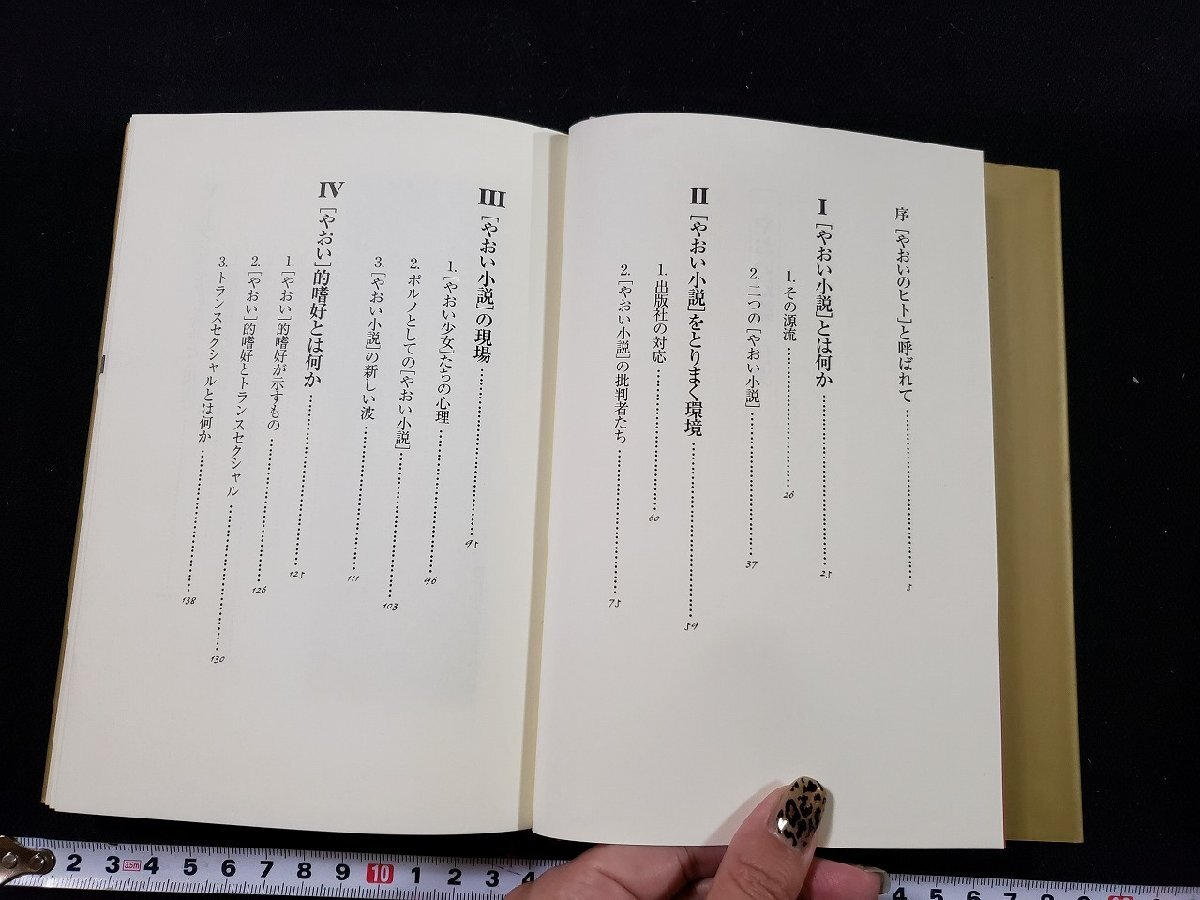 序 [やおいのヒト]と呼ばれて 5
I [やおい小説]とは何か 25
1. その源流 26
2. 二つの[やおい小説] 37
II [やおい小説]をとりまく環境 59
1. 出版社の対応 60
2. [やおい小説]の批判者たち 75
III [やおい小説]の現場 95
1. [やおい少女]たちの心理 96
2. ポルノとしての[やおい小説] 103
3. [やおい小説]の新しい波 111
IV [やおい]的嗜好とは何か 125
1 [やおい]的嗜好が示すもの 126
2. [やおい]的嗜好とトランスセクシャル 130
3. トランスセクシャルとは何か 138
2 3 3.5m 4 5 6 7 8 9 10 1 2 3 4
4 5 6 7 8 9